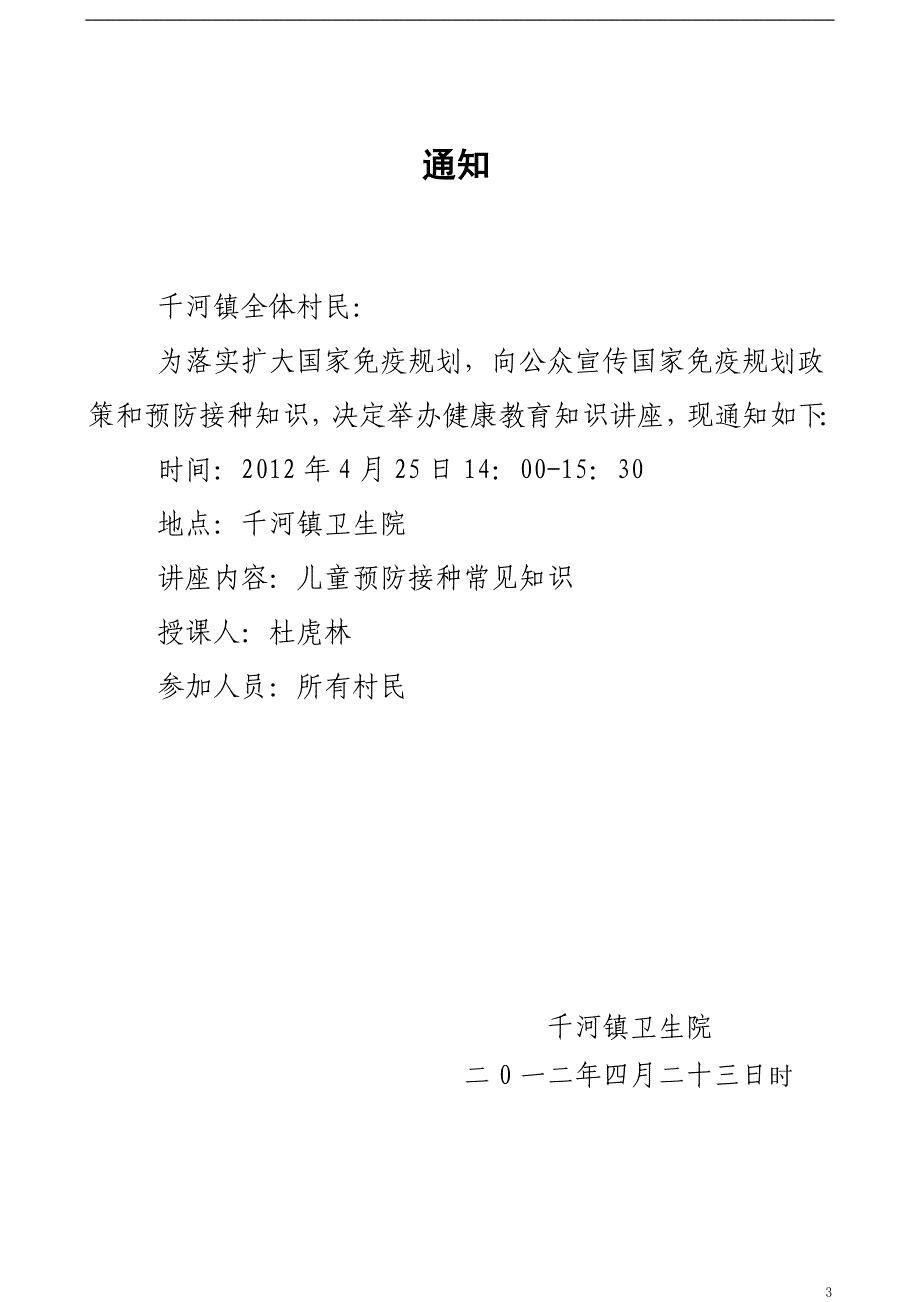 通知
千河镇全体村民：
为落实扩大国家免疫规划，向公众宣传国家免疫规划政
策和预防接种知识，决定举办健康教育知识讲座，现通知如下：
时间：2012年4月25日14：00-15：30
地点：千河镇卫生院
讲座内容：儿童预防接种常见知识
授课人：杜虎林
参加人员：所有村民
千河镇卫生院
二0一二年四月二十三日时
3